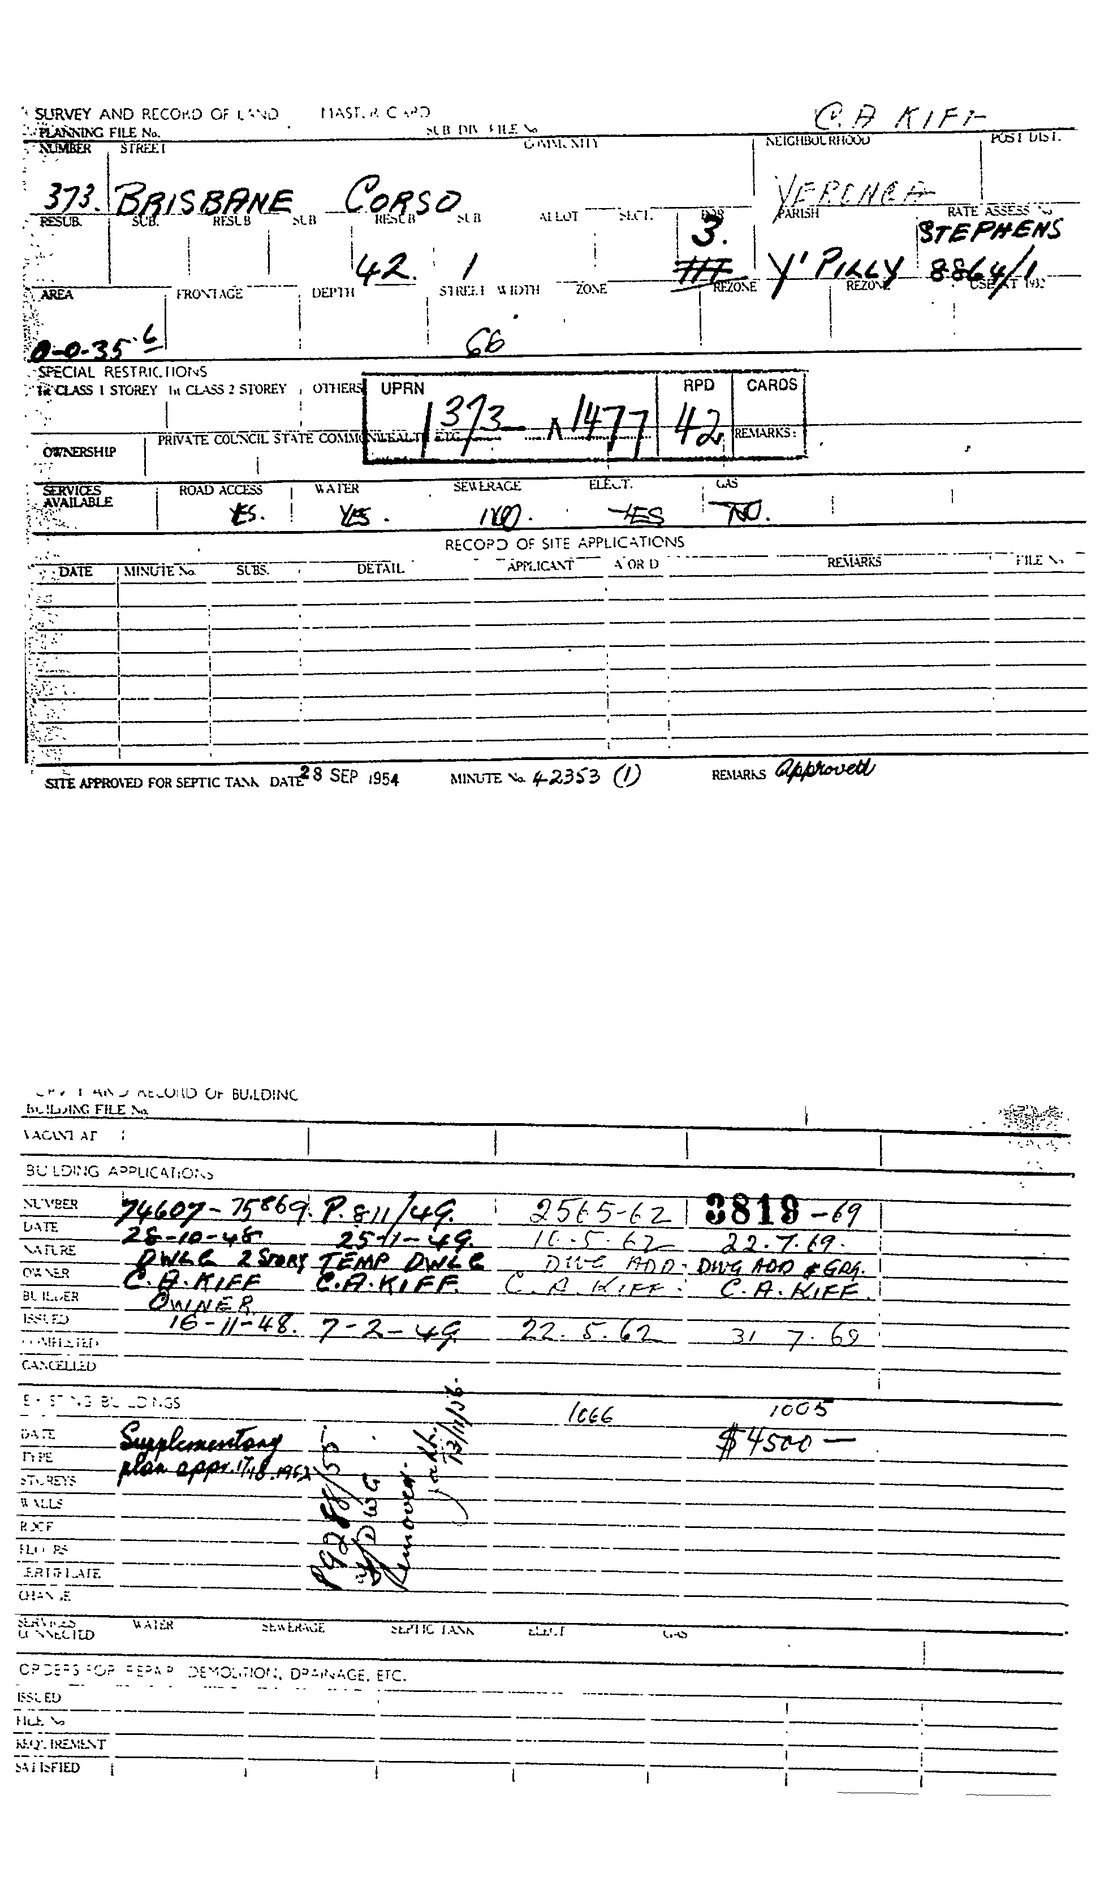 SURVEY AND RECORD OF LAND MASTER CARD C. A KIFF
PLANNING FILE No. SUB DIV. FILE No
NUMBER STREET COMMUNITY NEIGHBOURHOOD POST DIST.
373. BRISBANE CORSO YERONGA
RESUB. SUB. RESUB SUB RESUB SUB ALLOT SECT. POR PARISH RATE ASSESS No
42. 1 3. Y'PILLY STEPHENS
8864/1
AREA FRONTAGE DEPTH STREET WIDTH ZONE REZONE REZONE USE AT 1932
0-0-35.6 66
SPECIAL RESTRICTIONS
1st CLASS 1 STOREY 1st CLASS 2 STOREY OTHERS UPRN RPD CARDS
1373 1477 42
OWNERSHIP PRIVATE COUNCIL STATE COMMONWEALTH ETC. REMARKS:
SERVICES AVAILABLE ROAD ACCESS WATER SEWERAGE ELECT. GAS
YES. YES. NO. YES NO.
RECORD OF SITE APPLICATIONS
DATE MINUTE No. SUBS. DETAIL APPLICANT A OR D REMARKS FILE No
SITE APPROVED FOR SEPTIC TANK DATE 28 SEP 1954 MINUTE No. 42353 (1) REMARKS Approved
SURVEY AND RECORD OF BUILDING
BUILDING FILE No.
VACANT AT
BUILDING APPLICATIONS
NUMBER 74607-75869. P.811/49. 2565-62 3819-69
DATE 28-10-48 25-1-49. 16-5-62 22.7.69.
NATURE DWLG 2 STORY TEMP DWLG DWG ADD. DWG ADD & GRG.
OWNER C.A. KIFF C.A. KIFF. C.A. KIFF. C.A. KIFF.
BUILDER OWNER
ISSUED 16-11-48. 7-2-49. 22.5.62 31 7.69
COMPLETED
CANCELLED
EXISTING BUILDINGS 1066 1005
DATE Supplementary $4500—
TYPE plan appr.
STOREYS
WALLS
ROOF
FLOORS
CERTIFICATE
CHANGE
P9288/55
DWG
Removed.
13/11/56.
SERVICES CONNECTED WATER SEWERAGE SEPTIC TANK ELECT GAS
ORDERS FOR REPAIR, DEMOLITION, DRAINAGE, ETC.
ISSUED
FILE No
REQUIREMENT
SATISFIED